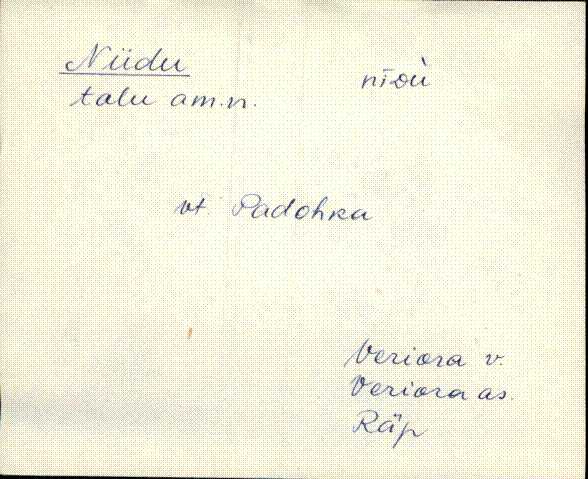 Niidu
nīᴅù
talu am.n.
vt. Padohka
Veriora v.
Veriora as.
Räp